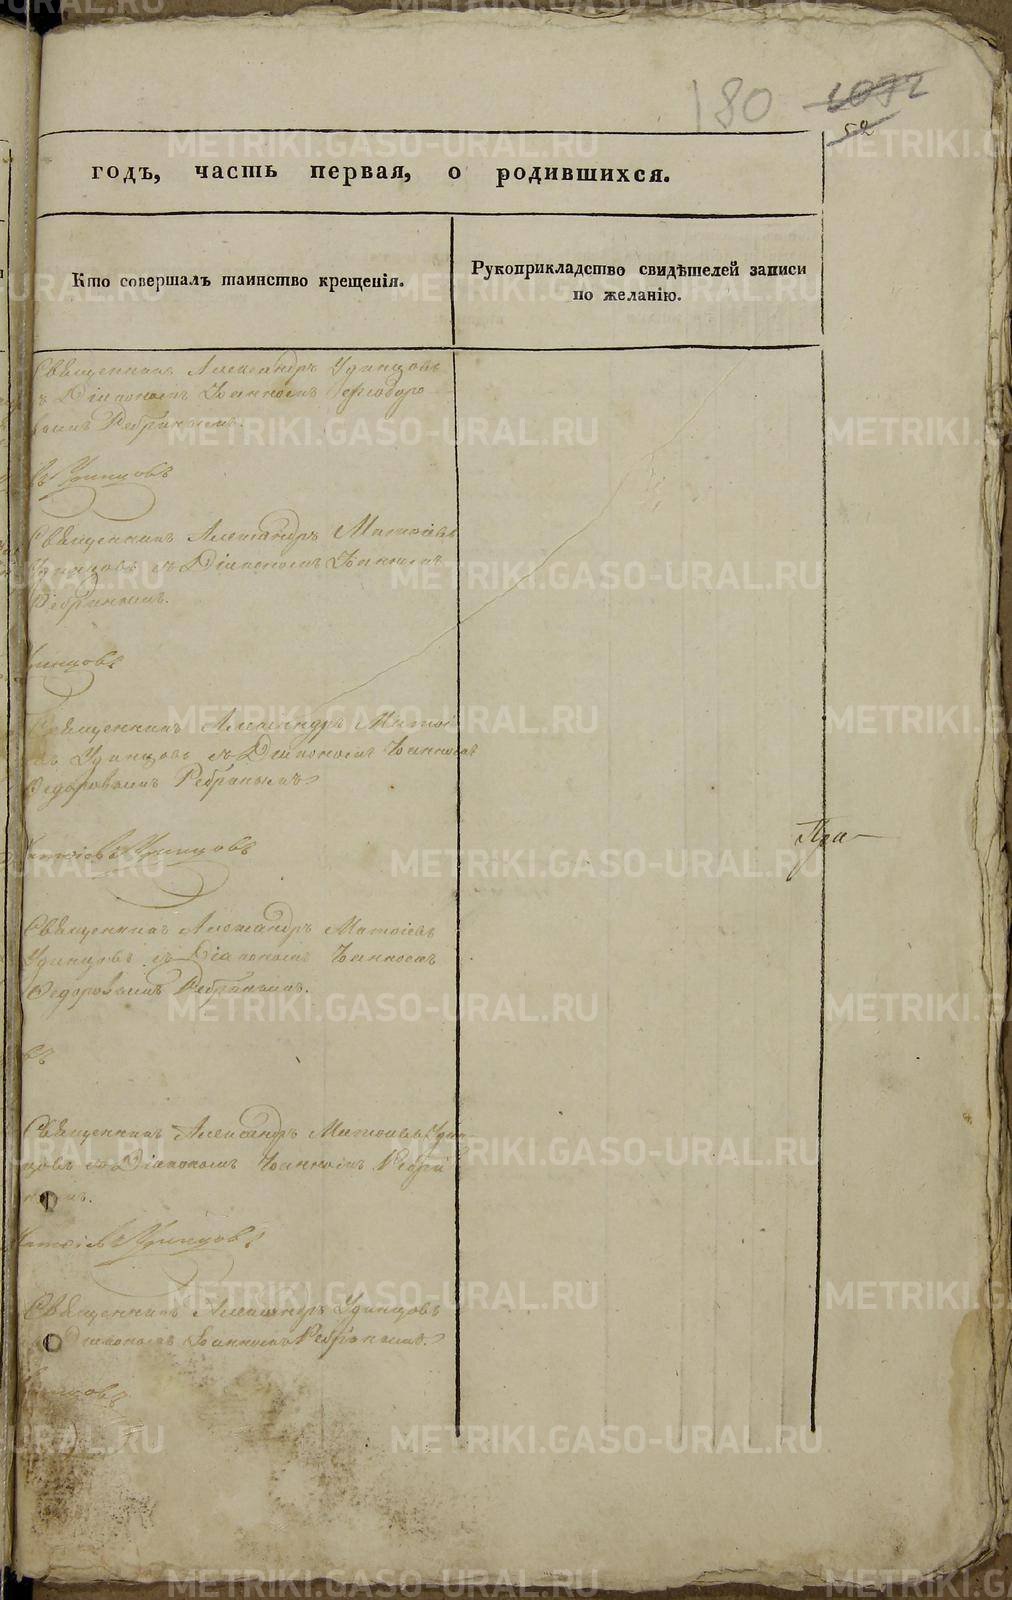 180 1092
52
годъ, часть первая, о родившихся.
Кто совершалъ таинство крещенія.
Рукоприкладство свидѣтелей записи
по желанію.
Священникъ Александръ Удинцовъ
съ Діакономъ Іоанномъ Феодоро
вымъ Ребринымъ.
въ Удинцовъ
Священникъ Александръ Матѳіевъ
Удинцовъ съ Діакономъ Іоанномъ
Ребринымъ.
Удинцовъ
Священникъ Александръ Матѳі
евъ Удинцовъ съ Діакономъ Іоанномъ
Ѳедоровымъ Ребринымъ
Матѳіевъ Удинцовъ
Пра-
Священникъ Александръ Матѳіевъ
Удинцовъ съ Діакономъ Іоанномъ
Ѳедоровымъ Ребринымъ.
въ
Священникъ Александръ Матѳіевъ Удин
цовъ съ Діакономъ Іоанномъ Ребри
нымъ.
Матѳіевъ Удинцовъ
Священникъ Александръ Удинцовъ
съ Діакономъ Іоанномъ Ребринымъ.
Удинцовъ
METRIKI.GASO-URAL.RU